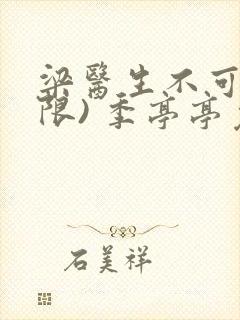 梁醫生不可
限) 季亭亭
石美祥